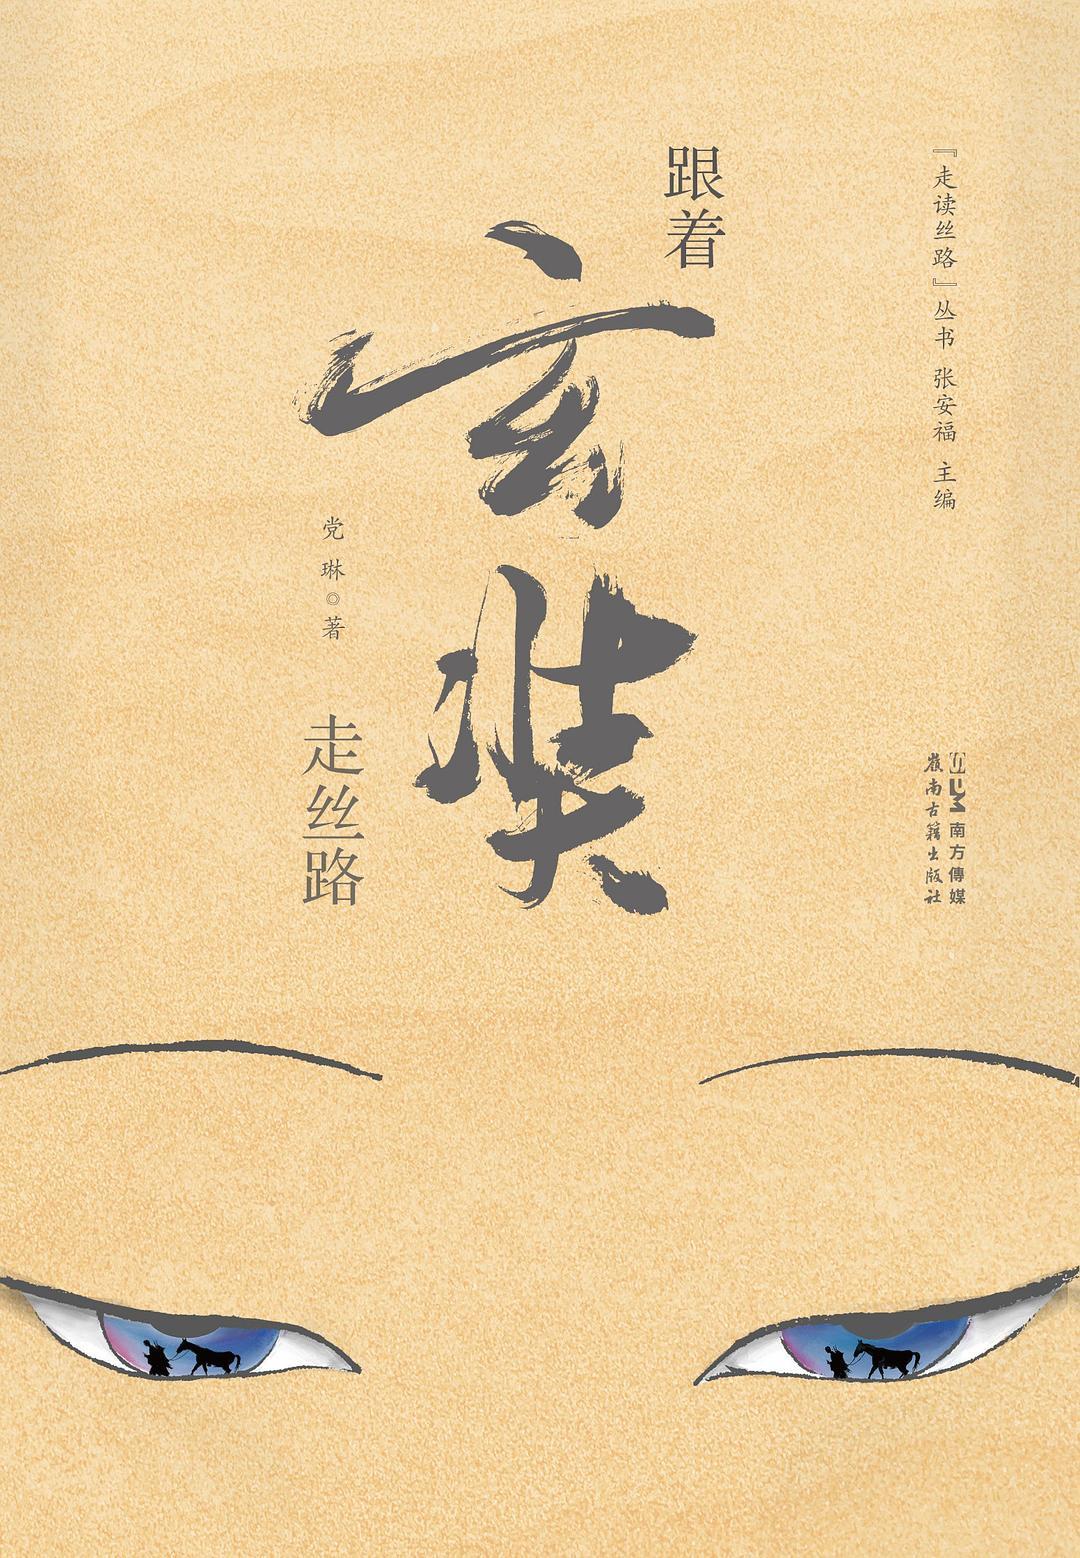 『走读丝路』丛书 张安福 主编
跟着
玄奘
走丝路
党琳◎著
南方傳媒
嶺南古籍出版社